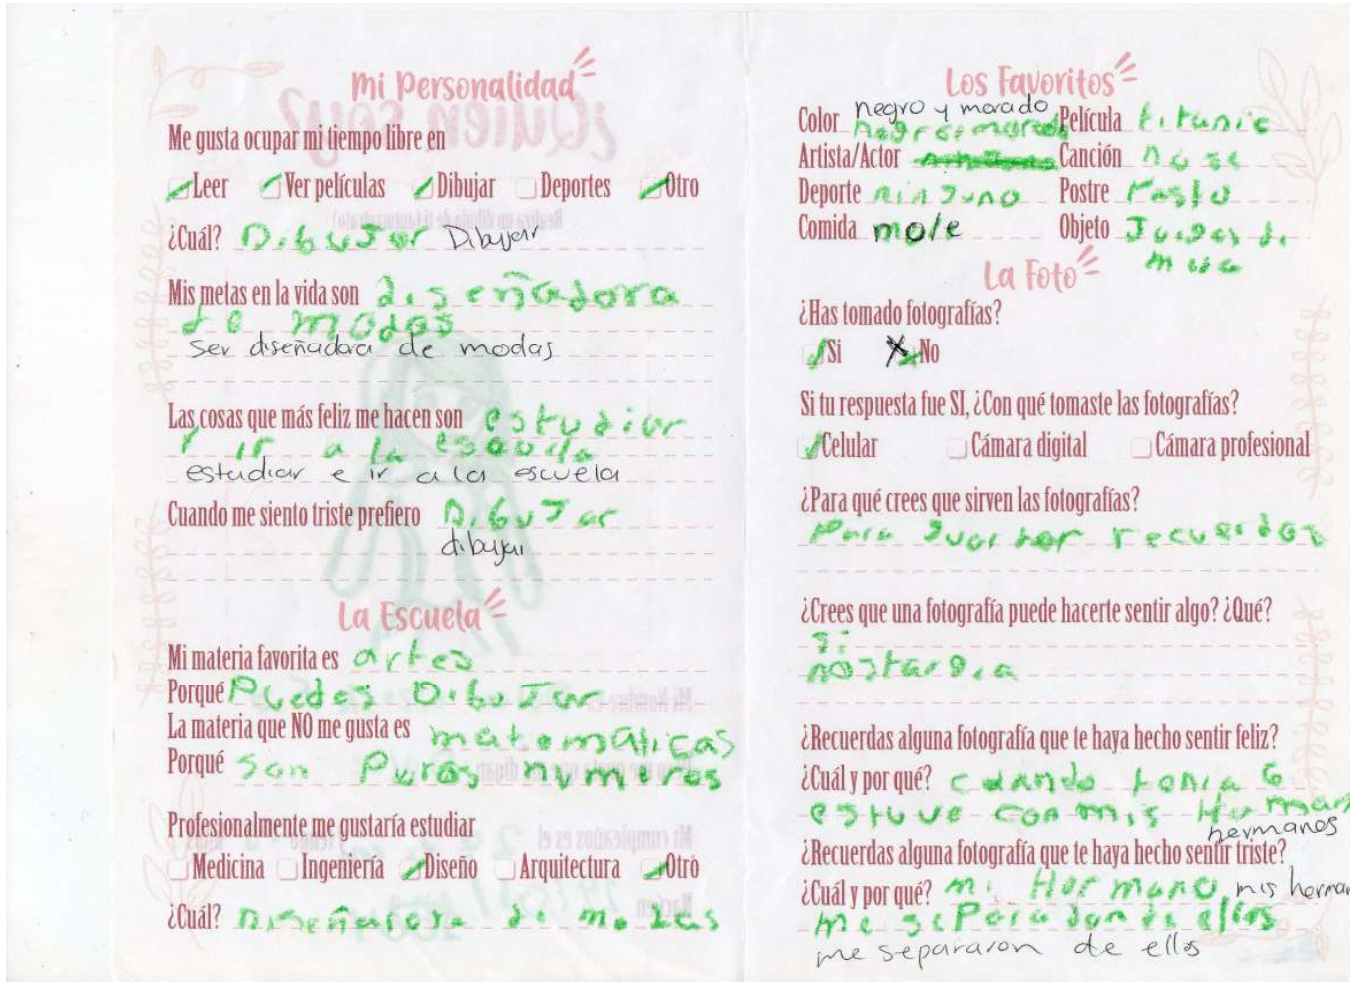 Mi Personalidad
Me gusta ocupar mi tiempo libre en
Leer Ver películas Dibujar Deportes Otro
¿Cuál? DibuJar Dibujar
Mis metas en la vida son diseñadora
de modas
ser diseñadora de modas
Las cosas que más feliz me hacen son estudiar
Y ir a la escuela
estudiar e ir a la escuela
Cuando me siento triste prefiero DibuJar
dibujar
La Escuela
Mi materia favorita es artes
Porqué Puedes DibuJar
La materia que NO me gusta es matematicas
Porqué son Puros numeros
Profesionalmente me gustaría estudiar
Medicina Ingeniería Diseño Arquitectura Otro
¿Cuál? Diseñadora de modas
Los Favoritos
negro y morado
Color Película titanic
Artista/Actor Canción no se
Deporte ninguno Postre Pastel
Comida mole Objeto
La Foto
¿Has tomado fotografías?
Si No
Si tu respuesta fue SI, ¿Con qué tomaste las fotografías?
Celular Cámara digital Cámara profesional
¿Para qué crees que sirven las fotografías?
Para guardar recuerdos
¿Crees que una fotografía puede hacerte sentir algo? ¿Qué?
si
nostargia
¿Recuerdas alguna fotografía que te haya hecho sentir feliz?
¿Cuál y por qué? cuando tenia 6
estuve con mis Herman
hermanos
¿Recuerdas alguna fotografía que te haya hecho sentir triste?
¿Cuál y por qué? mi Hermano mis herman
me separaron de ellos
me separaron de ellos